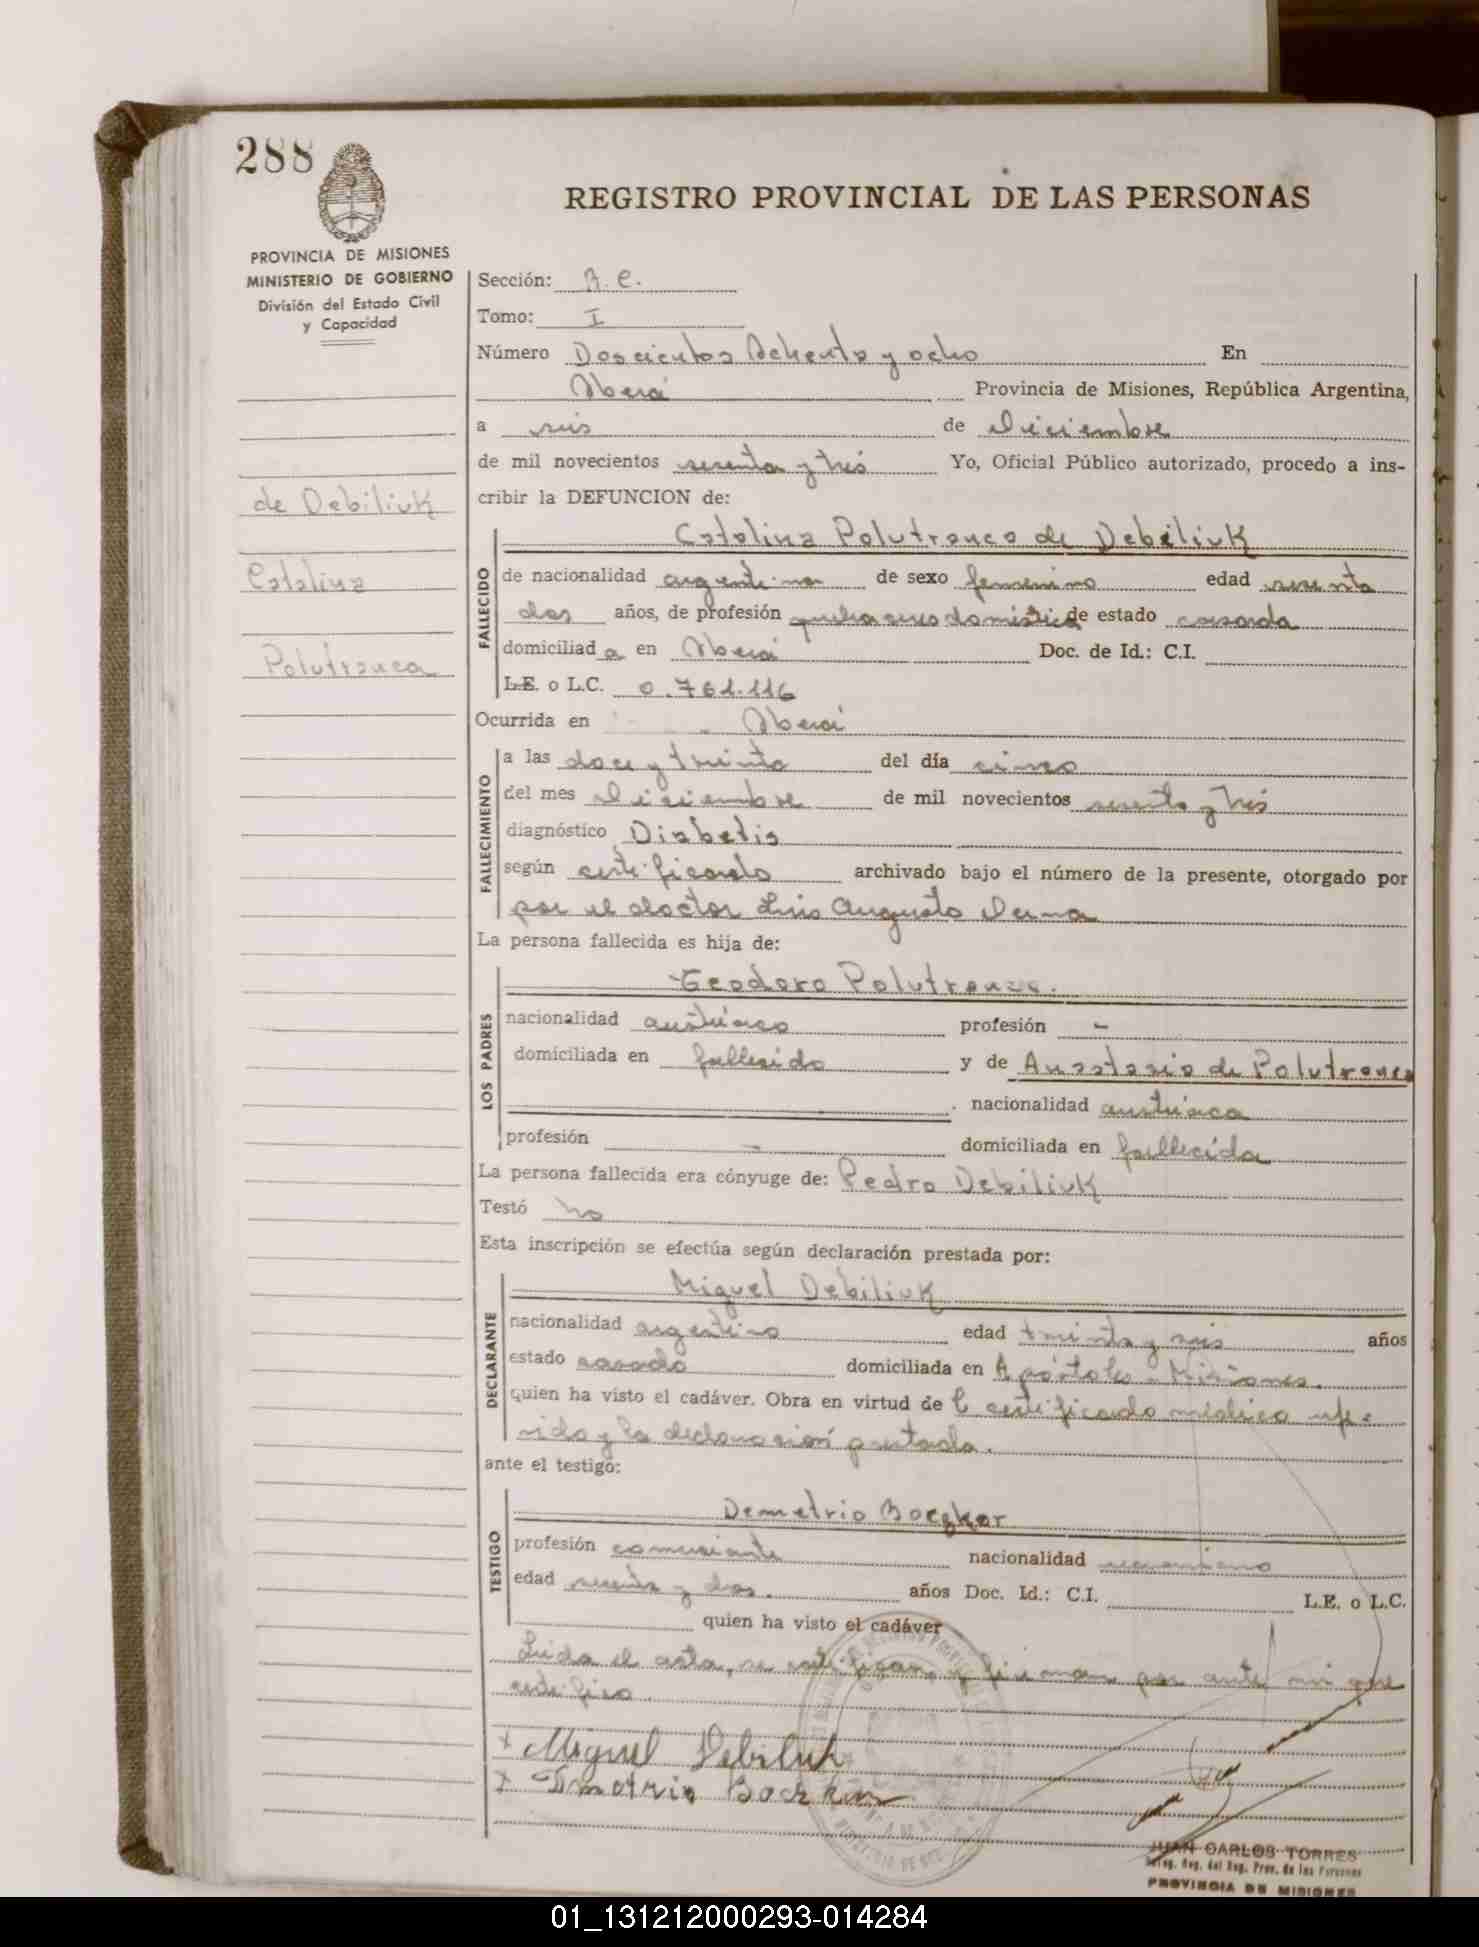 288
REGISTRO PROVINCIAL DE LAS PERSONAS
PROVINCIA DE MISIONES
MINISTERIO DE GOBIERNO
División del Estado Civil
y Capacidad
de Debiliuk
Catalina
Polutranca
Sección: R. C.
Tomo: I
Número Doscientos Ochenta y ocho En
Oberá Provincia de Misiones, República Argentina,
a seis de Diciembre
de mil novecientos sesenta y tres Yo, Oficial Público autorizado, procedo a ins-
cribir la DEFUNCION de:
FALLECIDO
Catalina Polutranca de Debiliuk
de nacionalidad argentina de sexo femenino edad sesenta
dos años, de profesión quehaceres domésticos de estado casada
domiciliad a en Oberá Doc. de Id.: C.I.
L.E. o L.C. 0.761.116
Ocurrida en Oberá
FALLECIMIENTO
a las doce y treinta del día cinco
del mes Diciembre de mil novecientos sesenta y tres
diagnóstico Diabetis
según certificado archivado bajo el número de la presente, otorgado por
por el doctor Luis Augusto Derna
La persona fallecida es hija de:
LOS PADRES
Teodoro Polutranca.
nacionalidad austríaco profesión -
domiciliada en fallecido y de Anastasia de Polutranca
nacionalidad austríaca
profesión - domiciliada en fallecida
La persona fallecida era cónyuge de: Pedro Debiliuk
Testó No
Esta inscripción se efectúa según declaración prestada por:
DECLARANTE
Miguel Debiliuk
nacionalidad argentino edad treinta y seis años
estado casado domiciliada en Apóstoles - Misiones.
quien ha visto el cadáver. Obra en virtud de el certificado médico refe-
rido y la declaración prestada.
ante el testigo:
TESTIGO
Demetrio Boczkar
profesión comerciante nacionalidad
edad sesenta y dos. años Doc. Id.: C.I. L.E. o L.C.
quien ha visto el cadáver
Leída el acta, se ratifican y firman por ante mí que
certifico.
x Miguel Debiluk
x Dmotrio Boczkar
JUAN CARLOS TORRES
Deleg. Reg. del Reg. Prov. de las Personas
PROVINCIA DE MISIONES
01_131212000293-014284